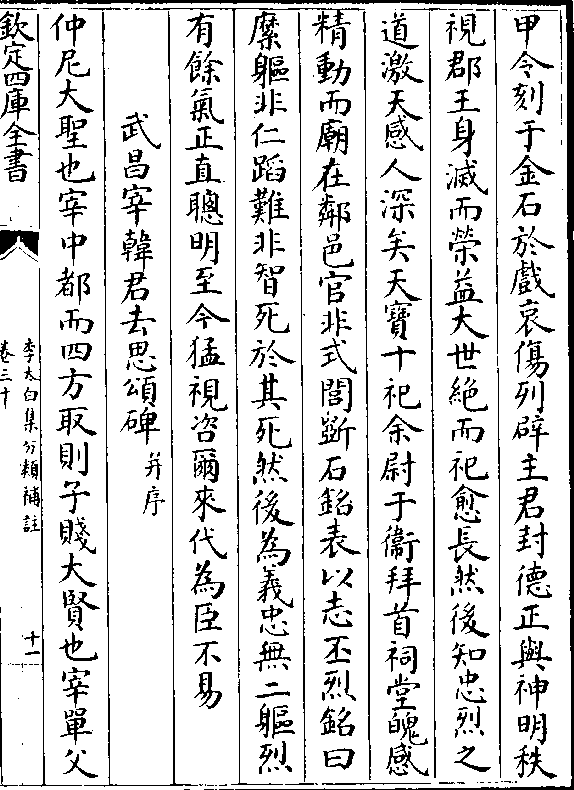 甲令刻于金石於戲哀傷列辟主君封德正與神明秩
視郡王身滅而榮益大世絶而祀愈長然後知忠烈之
道激天感人深矣天寳十祀余尉于衞拜首祠堂魄感
精動而廟在鄰邑官非式閭斵石銘表以志丕烈銘曰
縻軀非仁蹈難非智死於其死然後為義忠無二軀烈
有餘氣正直聰明至今猛視咨爾來代為臣不易
武昌宰韓君去思頌碑并序
仲尼大聖也宰中都而四方取則子賤大賢也宰單父
欽定四庫全書
李太白集分類補註
卷三十
十一